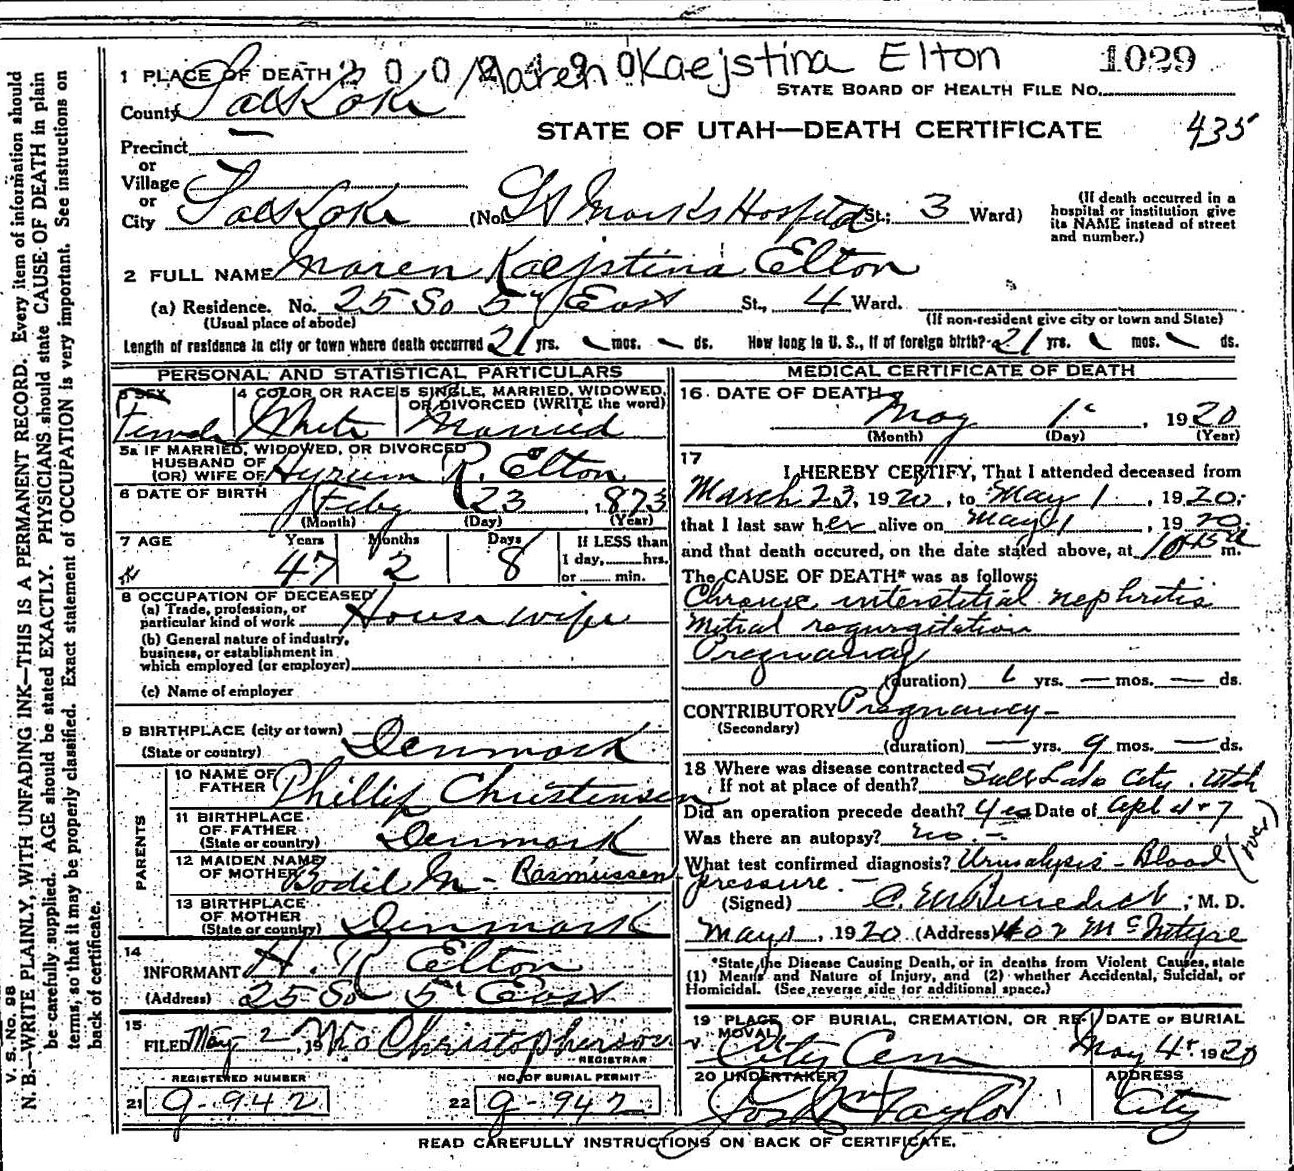 Maren Kaejstina Elton
1029
1 PLACE OF DEATH
STATE BOARD OF HEALTH FILE NO.
County Salt Lake
STATE OF UTAH—DEATH CERTIFICATE 435
Precinct —
or
Village
or
City Salt Lake (No. St Marks Hospital St.; 3 Ward)
(If death occurred in a hospital or institution give its NAME instead of street and number.)
2 FULL NAME Maren Kaejstina Elton
(a) Residence. No. 25 So 5th East St., 4 Ward.
(Usual place of abode) (If non-resident give city or town and State)
Length of residence in city or town where death occurred 21 yrs. mos. ds. How long in U. S., if of foreign birth? 21 yrs. mos. ds.
PERSONAL AND STATISTICAL PARTICULARS
3 SEX Female
4 COLOR OR RACE White
5 SINGLE, MARRIED, WIDOWED, OR DIVORCED (WRITE the word) Married
5a IF MARRIED, WIDOWED, OR DIVORCED
HUSBAND OF
(OR) WIFE OF Hyrum R. Elton
6 DATE OF BIRTH Feby 23, 1873
(Month) (Day) (Year)
7 AGE Years Months Days If LESS than
47 2 8 1 day, hrs.
or min.
8 OCCUPATION OF DECEASED
(a) Trade, profession, or
particular kind of work House wife
(b) General nature of industry,
business, or establishment in
which employed (or employer)
(c) Name of employer
9 BIRTHPLACE (city or town)
(State or country) Denmark
PARENTS
10 NAME OF FATHER Phillip Christensen
11 BIRTHPLACE OF FATHER (State or country) Denmark
12 MAIDEN NAME OF MOTHER Bodil M - Rasmussen
13 BIRTHPLACE OF MOTHER (State or country) Denmark
14
INFORMANT H. R. Elton
(Address) 25 So 5th East
15
FILED May 2, 19 Christopherson
REGISTRAR
REGISTERED NUMBER NO. OF BURIAL PERMIT
21 g-942 22 g-942
MEDICAL CERTIFICATE OF DEATH
16 DATE OF DEATH
May 1, 1920
(Month) (Day) (Year)
17
I HEREBY CERTIFY, That I attended deceased from
March 23, 1920, to May 1, 1920;
that I last saw her alive on May 1, 1920
and that death occured, on the date stated above, at 1045a m.
The CAUSE OF DEATH* was as follows:
Chronic interstitial nephritis
Mitral regurgitation
Pregnancy
(duration) yrs. — mos. — ds.
CONTRIBUTORY Pregnancy -
(Secondary)
(duration) — yrs. 9 mos. — ds.
18 Where was disease contracted
If not at place of death? Salt Lake City. Utah
Did an operation precede death? yes Date of Apl 4 + 7
Was there an autopsy? no. -
What test confirmed diagnosis? Urinalysis - Blood (over)
pressure. -
(Signed) C. M. Benedict, M. D.
May 1, 1920 (Address) 402 McIntyre
*State the Disease Causing Death, or in deaths from Violent Causes, state
(1) Means and Nature of Injury, and (2) whether Accidental, Suicidal, or
Homicidal. (See reverse side for additional space.)
19 PLACE OF BURIAL, CREMATION, OR REMOVAL DATE OF BURIAL
City Cem May 4, 1920
20 UNDERTAKER ADDRESS
Jos Wm Taylor City
READ CAREFULLY INSTRUCTIONS ON BACK OF CERTIFICATE.
V. S. No. 98
N. B.—WRITE PLAINLY, WITH UNFADING INK—THIS IS A PERMANENT RECORD. Every item of information should
be carefully supplied. AGE should be stated EXACTLY. PHYSICIANS should state CAUSE OF DEATH in plain
terms, so that it may be properly classified. Exact statement of OCCUPATION is very important. See instructions on
back of certificate.